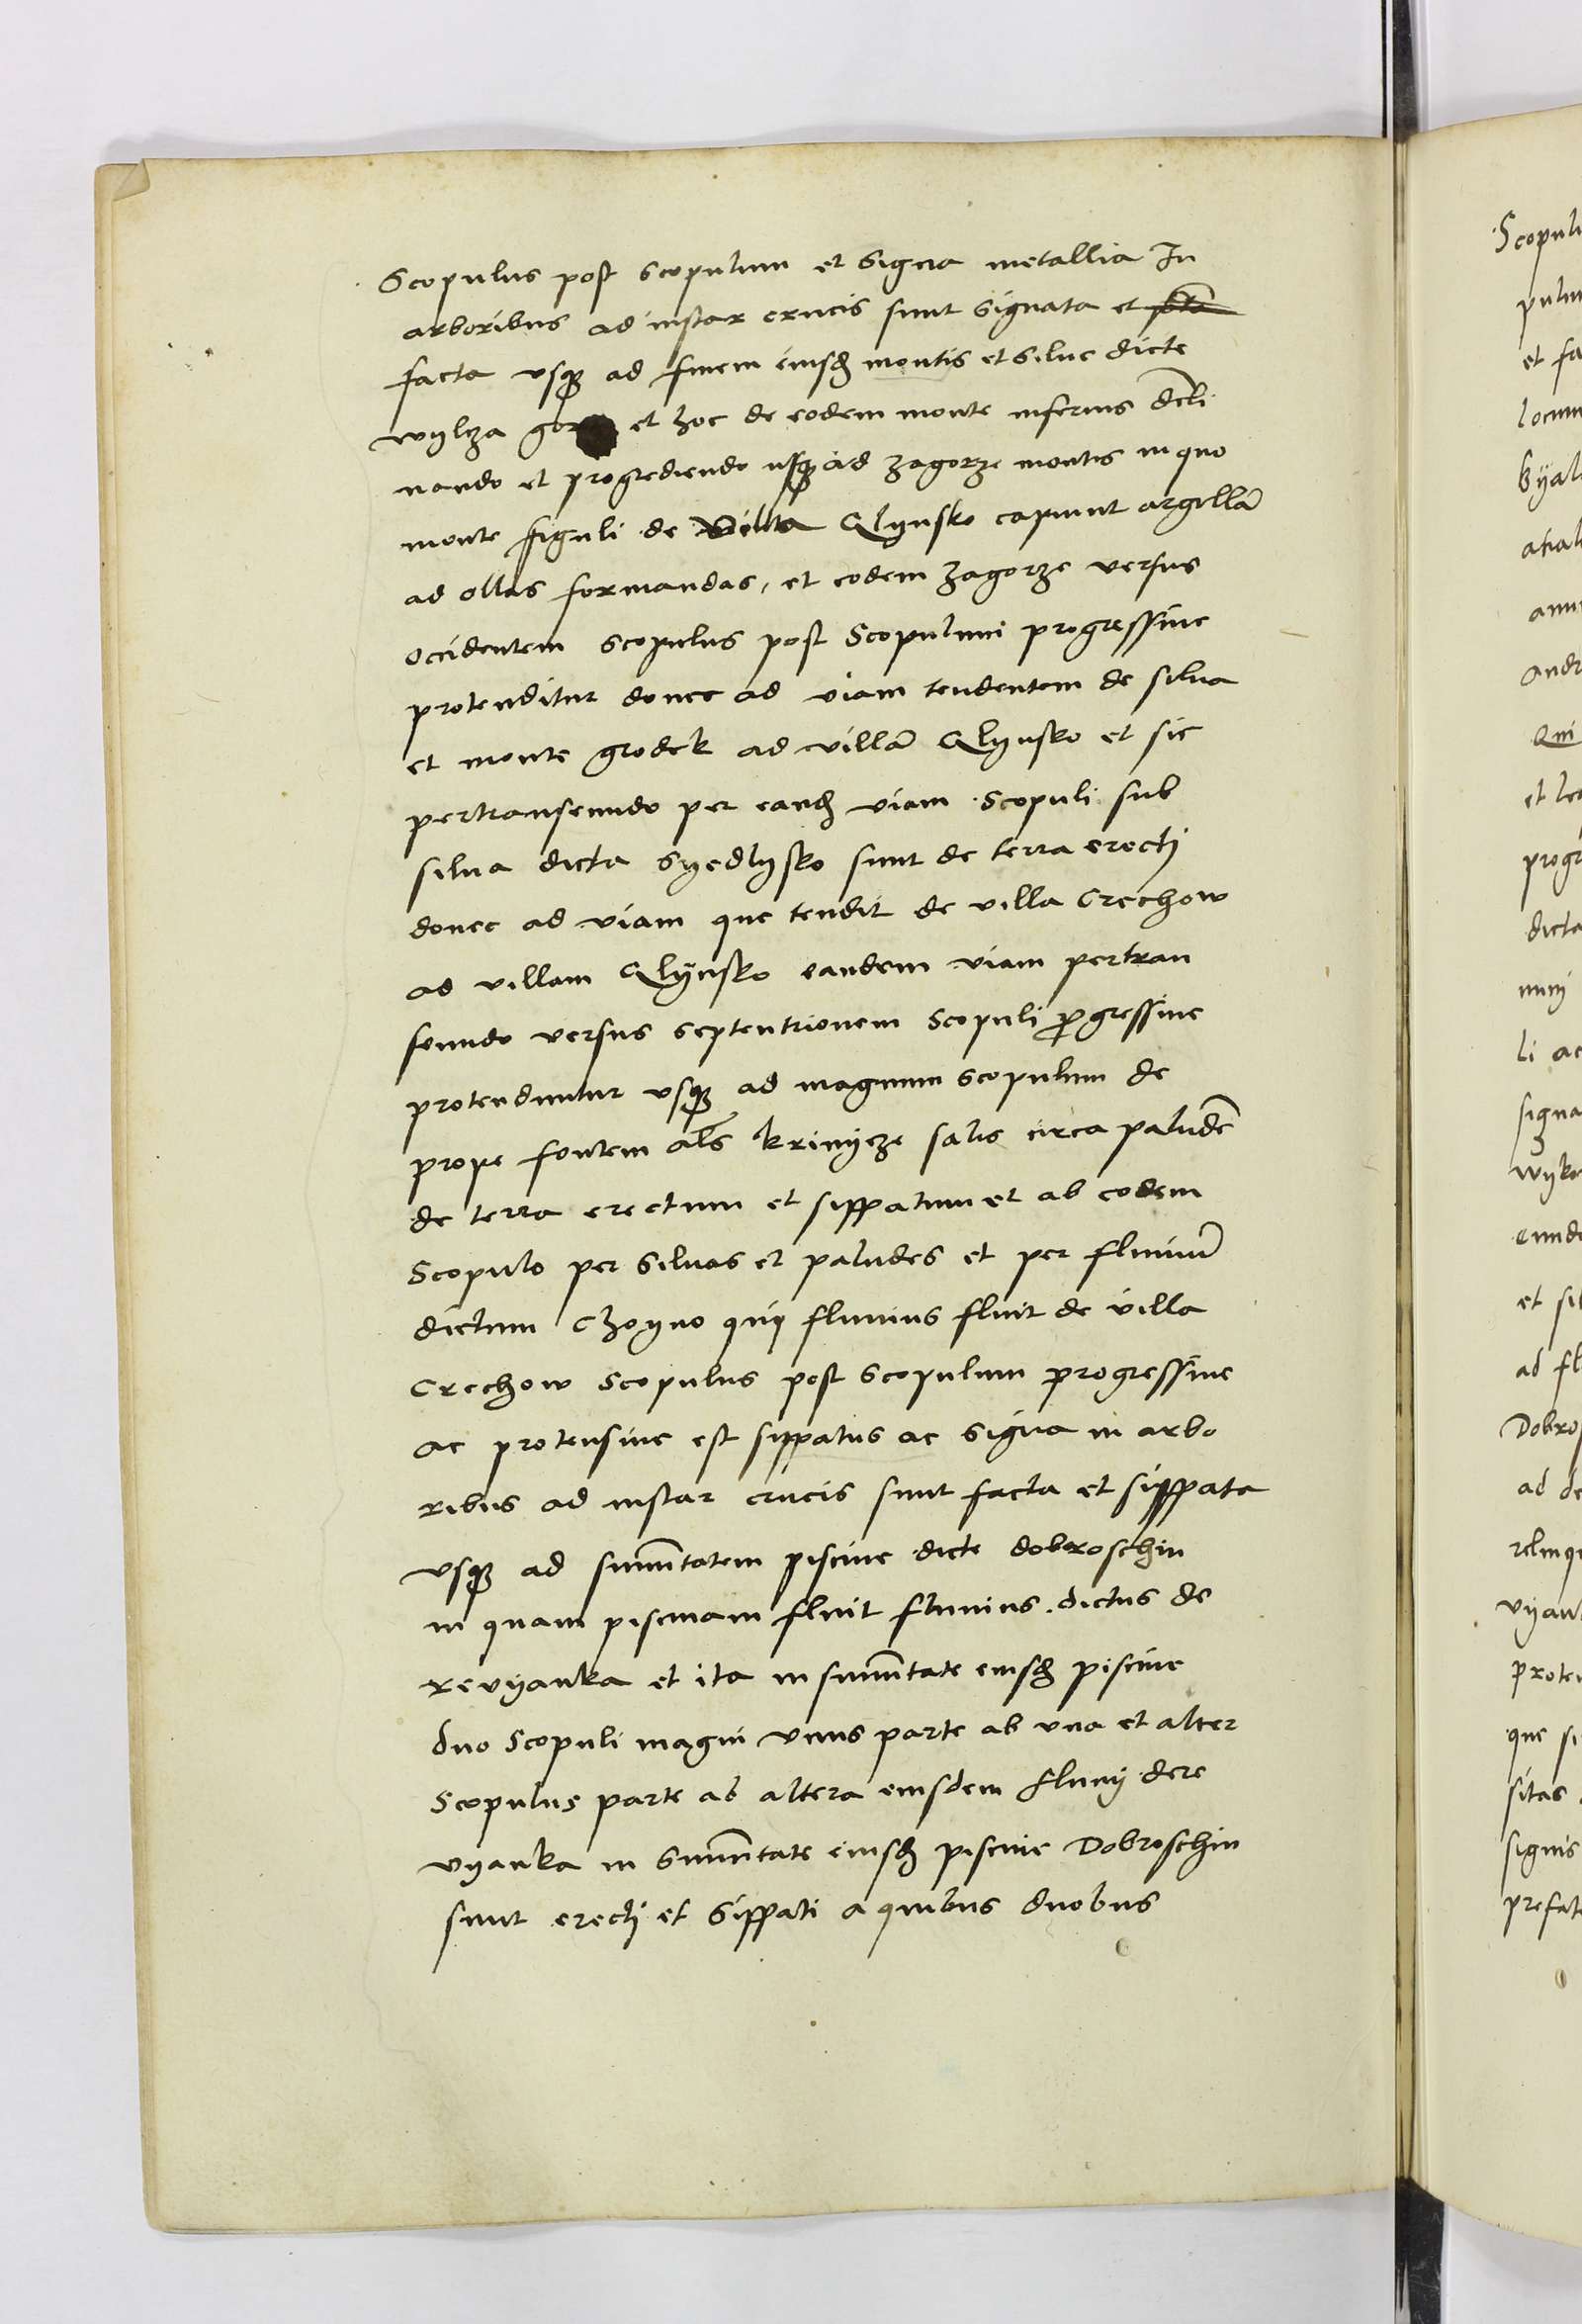 Scopulus post scopulum et signa metallia In
arboribus ad instar crucis sunt signata et
facta vsqꝫ ad finem eiusdꝫ montis et silue dicte
wylcza gor et hoc de eodem monte inferius decli
nando et progrediendo usqꝫ ad zagorze montis in quo
monte figuli de villa Glynsko capiunt argillā
ad ollas formandas, et eodem zagorze versus
occidentem scopulus post Scopulum progressiue
protenditur donec ad viam tendentem de silua
et monte grodek ad villā Glynsko et sic
pertranseundo per eandꝫ viam Scopuli sub
silua dicta Syedlysko sunt de terra erectj
donec ad viam que tendit de villa Crechow
ad villam Glynsko eandem viam pertran
seundo versus septentrionem Scopuli ꝓgressiue
protenduntur vsqꝫ ad magnum scopulum de
prope fontem als̄ krinycze salis circa paludē
de terra erectum et sippatum et ab eodem
Scopulo per siluas et paludes et per fluuiū
dictum Choyno quy fluuius fluit de villa
Crechow Scopulus post scopulum progressiue
ac protensiue est sippatus ac signa in arbo
ribus ad instar crucis sunt facta et sippata
vsqꝫ ad sum̄itatem piscine dicte dobroschin
in quam piscinam fluit fluuius dictus de
revyanka et ita in sum̄itate eiusdꝫ piscine
duo Scopuli magni vnus parte ab vna et alter
Scopulus parte ab altera eiusdem fluuij dere
vyanka in sum̄itate eiusdꝫ piscine Dobroschin
sunt erectj et sippati a quibus duobus